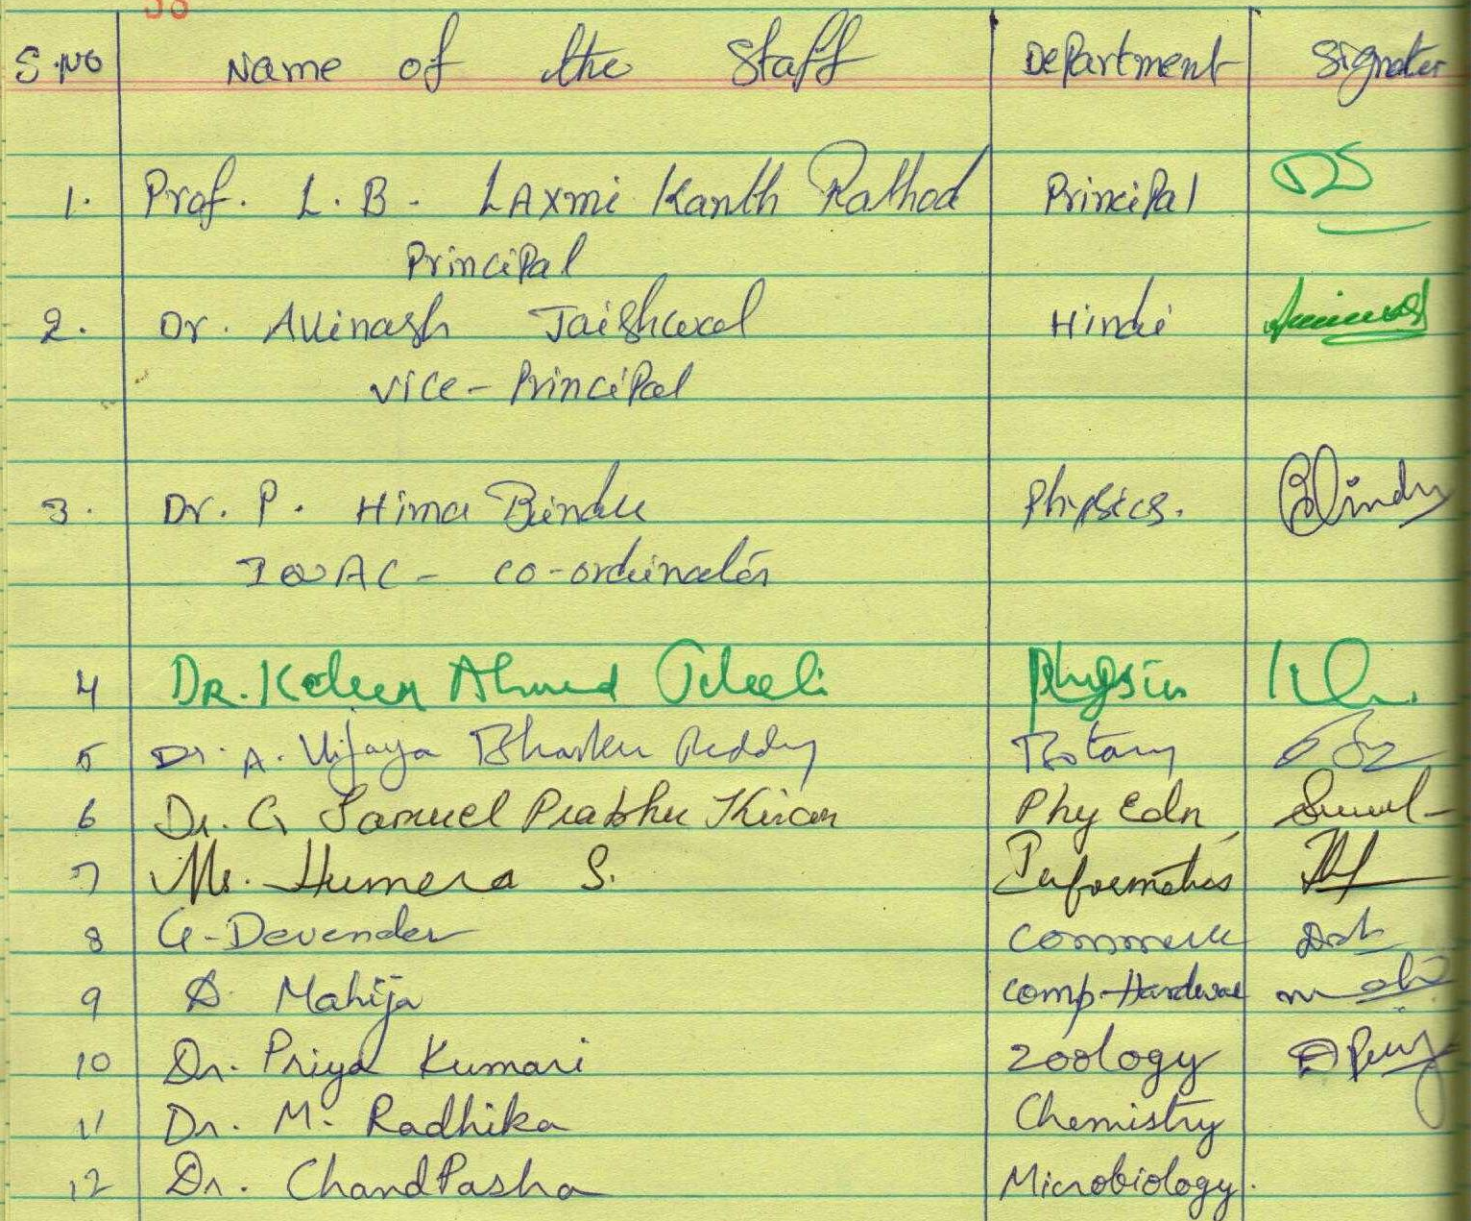 38
S.No Name of the Staff Department Signature
1. Prof. L.B. LAxmi Kanth Rathod Principal
Principal
2. Dr. Avinash Jaishwal Hindi
Vice-Principal
3. Dr. P. Hima Bindu Physics. Bindu
IQAC- co-ordinator
4 DR. Kaleem Ahmed Physics
5 Dr. A. Vijaya Bhasker Reddy Botany
6 Dr. G Samuel Prabhu Kiran Phy Edn
7 Ms. Humera S. Informatics
8 G. Devender Commerce
9 D. Mahija Comp-Hardware
10 Dr. Priya Kumari Zoology
11 Dr. M. Radhika Chemistry
12 Dr. Chand Pasha Microbiology.